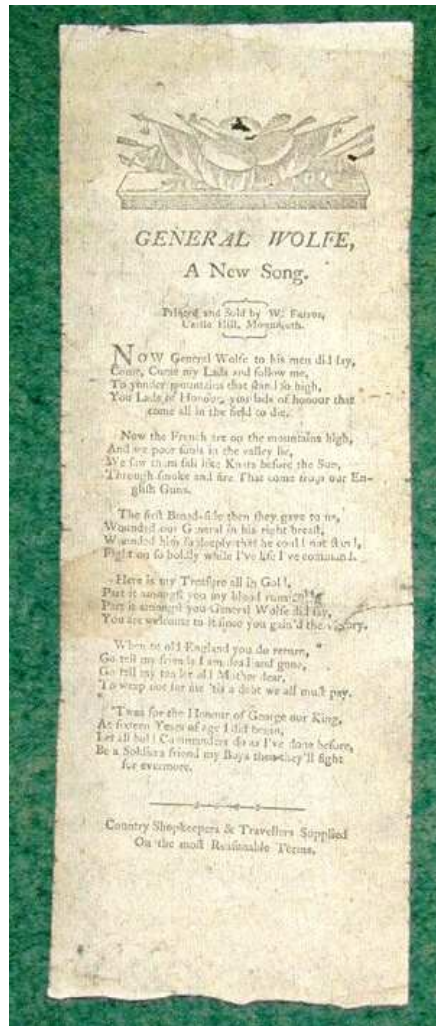 GENERAL WOLFE,
A New Song.
Printed and Sold by W. Farror,
Castle Hill, Monmouth.
NOW General Wolfe to his men did say,
Come, Come my Lads and follow me,
To yonder mountains that stand so high,
You Lads of Honour, you lads of honour that
come all in the field to die.
Now the French are on the mountains high,
And we poor souls in the valley lie,
We saw them fall like Knats before the Sun,
Through smoke and fire That come from our En-
glish Guns.
The first Broad-side then they gave to us,
Wounded our General in his right breast,
Wounded him so deeply that he could not stand,
Fight on so boldly while I've life I've command.
Here is my Treasure all in Gold,
Part it amongst you my blood runs
Part it amongst you General Wolfe did say,
You are welcome to it since you gain'd the victory.
When to old England you do return,
Go tell my friends I am dead and gone,
Go tell my tender old Mother dear,
To weep not for me 'tis a debt we all must pay.
'Twas for the Honour of George our King,
At sixteen Years of age I did begin,
Let all bold Commanders do as I've done before,
Be a Soldiers friend my Boys then they'll fight
for evermore.
Country Shopkeepers & Travellers Supplied
On the most Reasonable Terms.